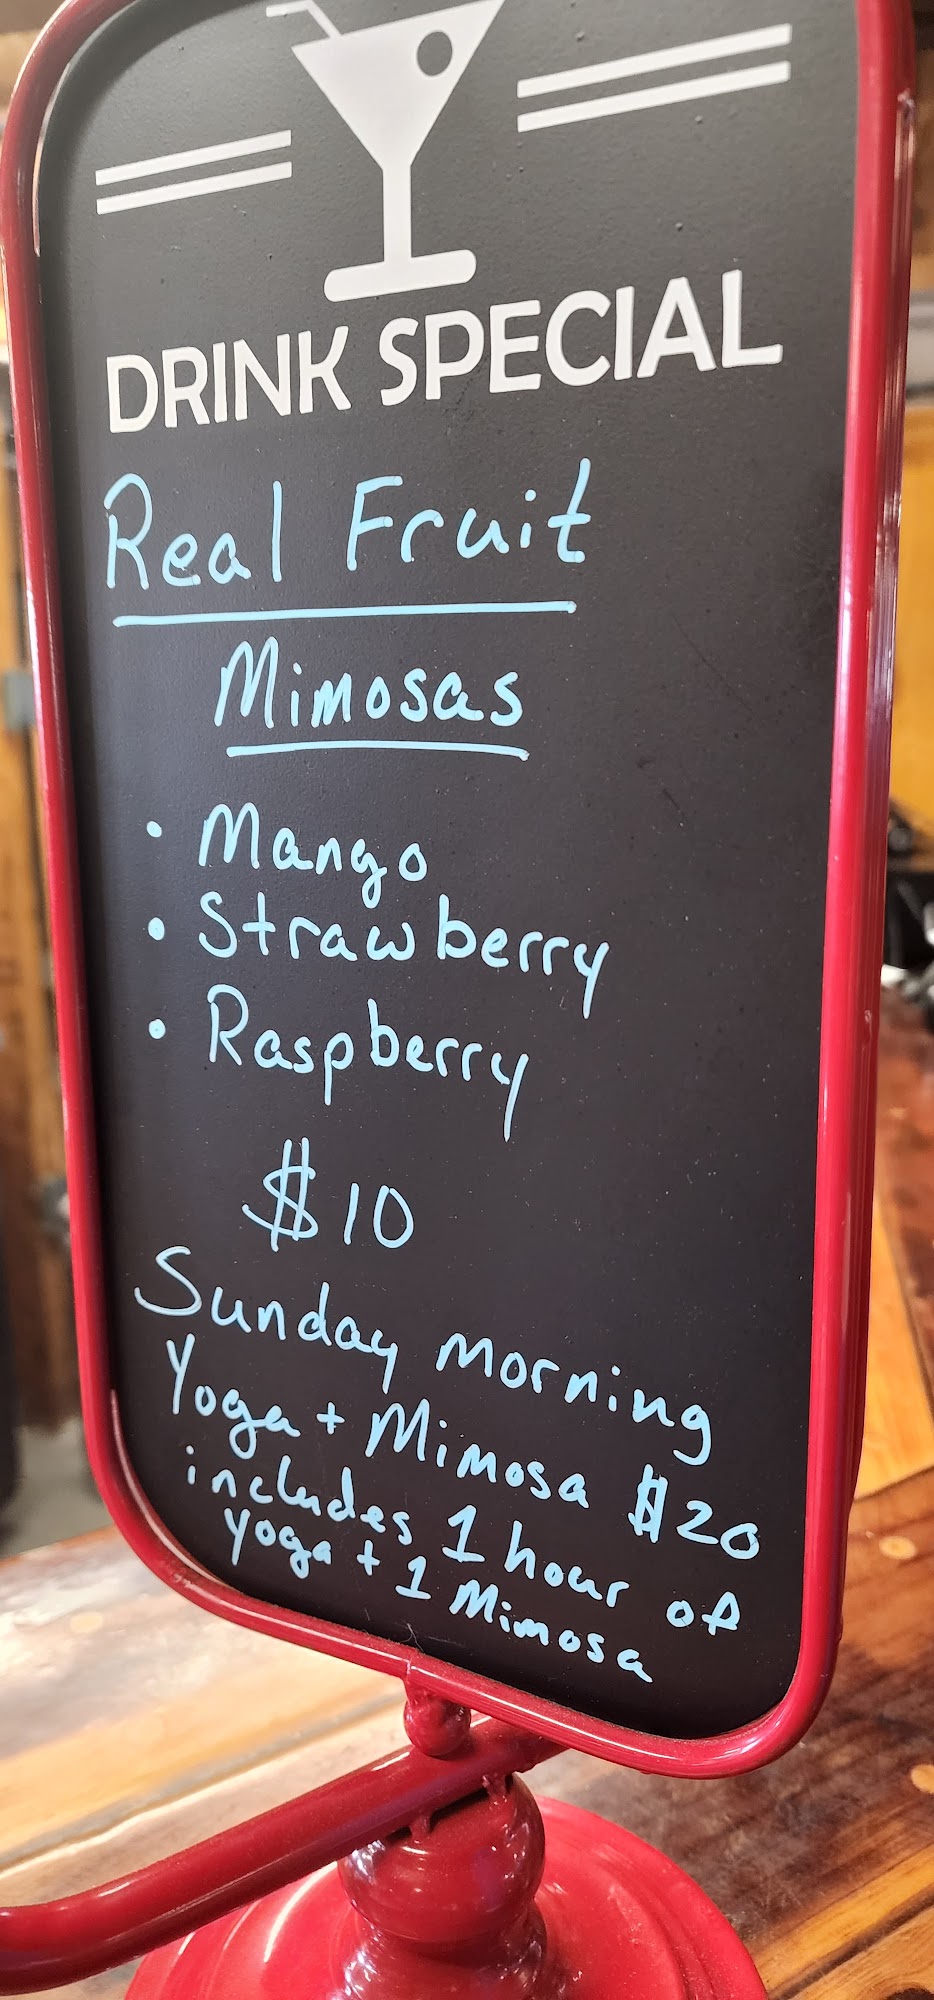 DRINK SPECIAL
Real Fruit
Mimosas
• Mango
• Strawberry
• Raspberry
$10
Sunday morning
Yoga + Mimosa $20
includes 1 hour of
yoga + 1 Mimosa